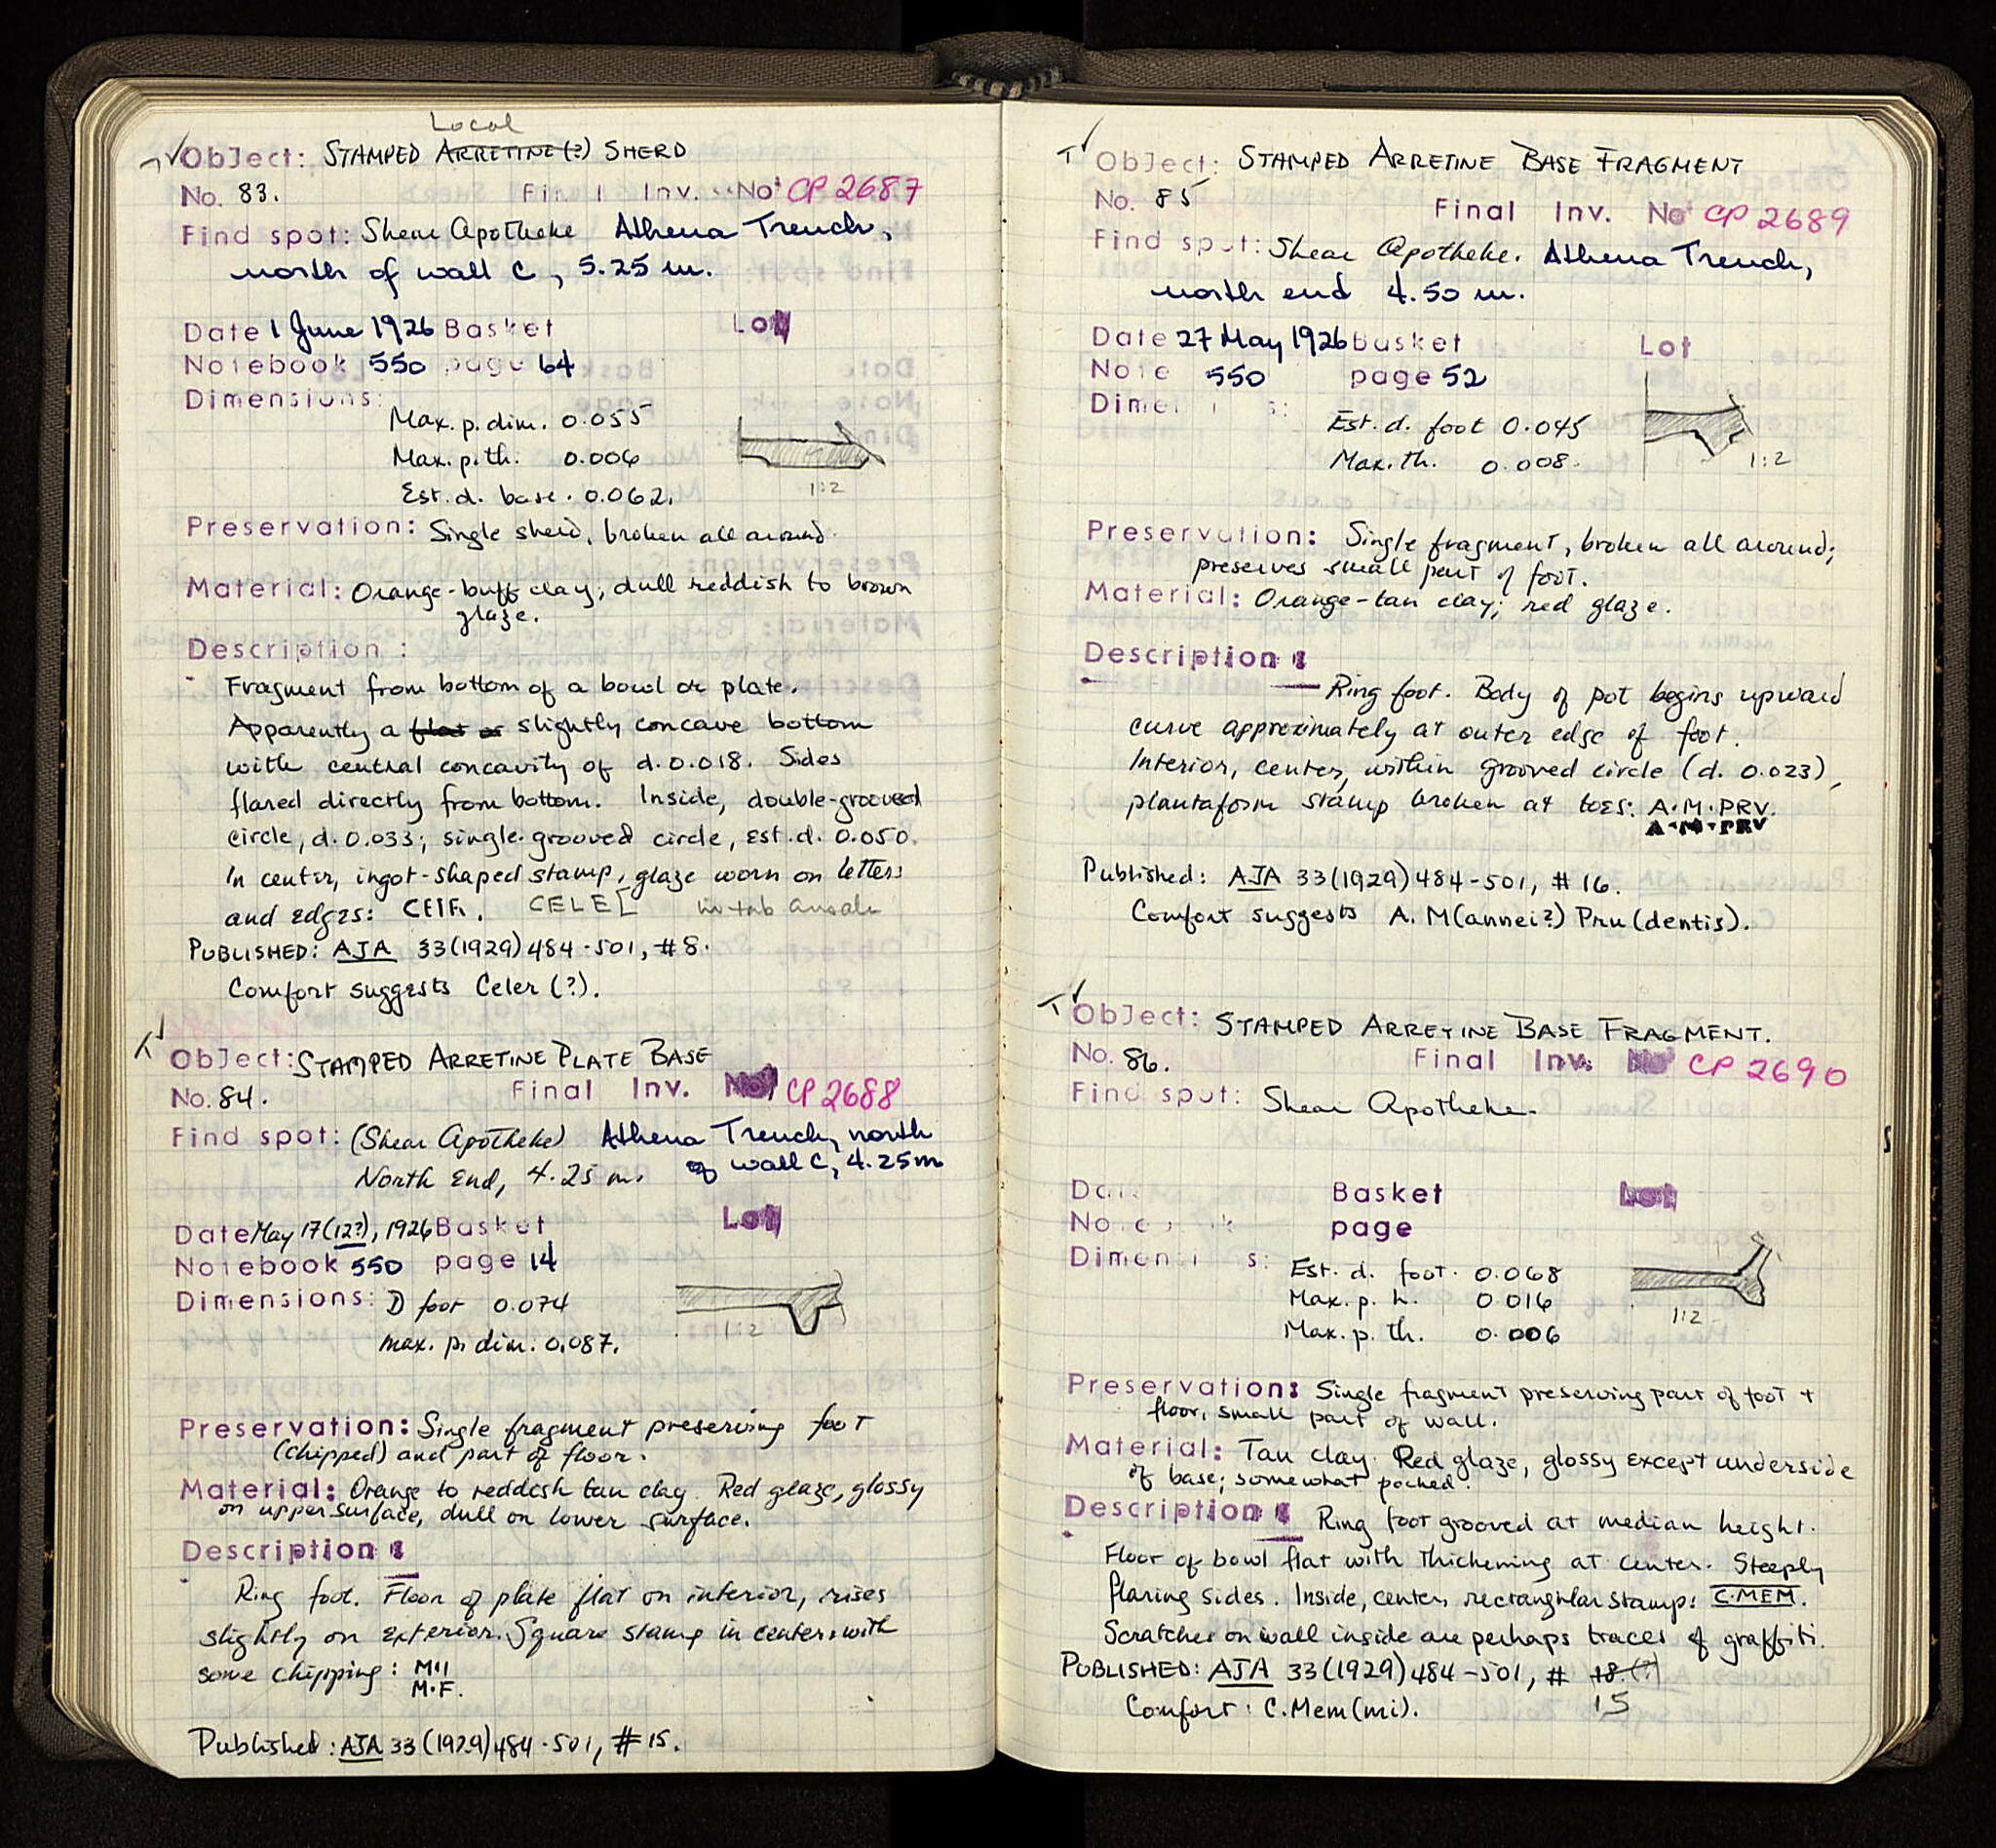 Local
Object: STAMPED ARRETINE (?) SHERD
No. 83. Final Inv. No. CP 2687
Find spot: Shear Apotheke Athena Trench,
north of wall C, 5.25 m.
Date 1 June 1926 Basket Lot
Notebook 550 page 64
Dimensions:
Max. p. dim. 0.055
Max. p. th. 0.006
Est. d. base. 0.062.
1:2
Preservation: Single sherd, broken all around.
Material: Orange-buff clay; dull reddish to brown
glaze.
Description:
Fragment from bottom of a bowl or plate.
Apparently a flat or slightly concave bottom
with central concavity of d. 0.018. Sides
flared directly from bottom. Inside, double-grooved
circle, d. 0.033; single-grooved circle, est. d. 0.050.
In center, ingot-shaped stamp, glaze worn on letters
and edges: CEIF. CELE[ in tab ansata
PUBLISHED: AJA 33 (1929) 484-501, #8.
Comfort suggests Celer (?).
Object: STAMPED ARRETINE PLATE BASE
No. 84. Final Inv. No. CP 2688
Find spot: (Shear Apotheke) Athena Trench, north
North End, 4.25 m. of wall C, 4.25 m
Date May 17 (12?), 1926 Basket Lot
Notebook 550 page 14
Dimensions: D foot 0.074
max. p. dim: 0.087.
1:2
Preservation: Single fragment preserving foot
(chipped) and part of floor.
Material: Orange to reddish tan clay. Red glaze, glossy
on upper surface, dull on lower surface.
Description:
Ring foot. Floor of plate flat on interior, rises
slightly on exterior. Square stamp in center, with
some chipping: M·II
M·F.
Published: AJA 33 (1929) 484-501, #15.
Object: STAMPED ARRETINE BASE FRAGMENT
No. 85 Final Inv. No. CP 2689
Find spot: Shear Apotheke. Athena Trench,
north end 4.50 m.
Date 27 May 1926 Basket Lot
Note 550 page 52
Dimensions:
Est. d. foot 0.045
Max. th. 0.008.
1:2
Preservation: Single fragment, broken all around;
preserves small part of foot.
Material: Orange-tan clay; red glaze.
Description:
Ring foot. Body of pot begins upward
curve approximately at outer edge of foot.
Interior, center, within grooved circle (d. 0.023),
plantaform stamp broken at toes: A·M·PRV.
A·M·PRV
Published: AJA 33 (1929) 484-501, #16.
Comfort suggests A. M(annei?) Pru(dentis).
Object: STAMPED ARRETINE BASE FRAGMENT.
No. 86. Final Inv. No. CP 2690
Find spot: Shear Apotheke.
Date Basket Lot
page
Dimensions:
Est. d. foot. 0.068
Max. p. h. 0.016
Max. p. th. 0.006
1:2
Preservation: Single fragment preserving part of foot +
floor, small part of wall.
Material: Tan clay. Red glaze, glossy except underside
of base; somewhat pocked.
Description: Ring foot grooved at median height.
Floor of bowl flat with thickening at center. Steeply
flaring sides. Inside, center, rectangular stamp: C·MEM.
Scratches on wall inside are perhaps traces of graffiti.
PUBLISHED: AJA 33 (1929) 484-501, # 18 (?)
15
Comfort: C. Mem(mi).